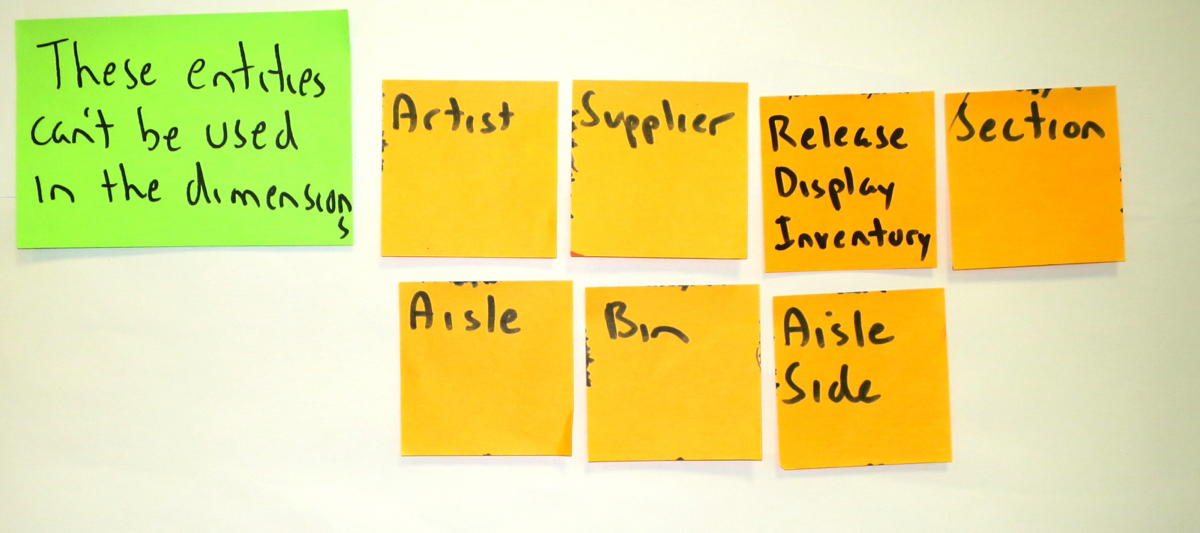 These entities
can't be used
in the dimension
s
Artist
Supplier
Release
Display
Inventory
Section
Aisle
Bin
Aisle
Side